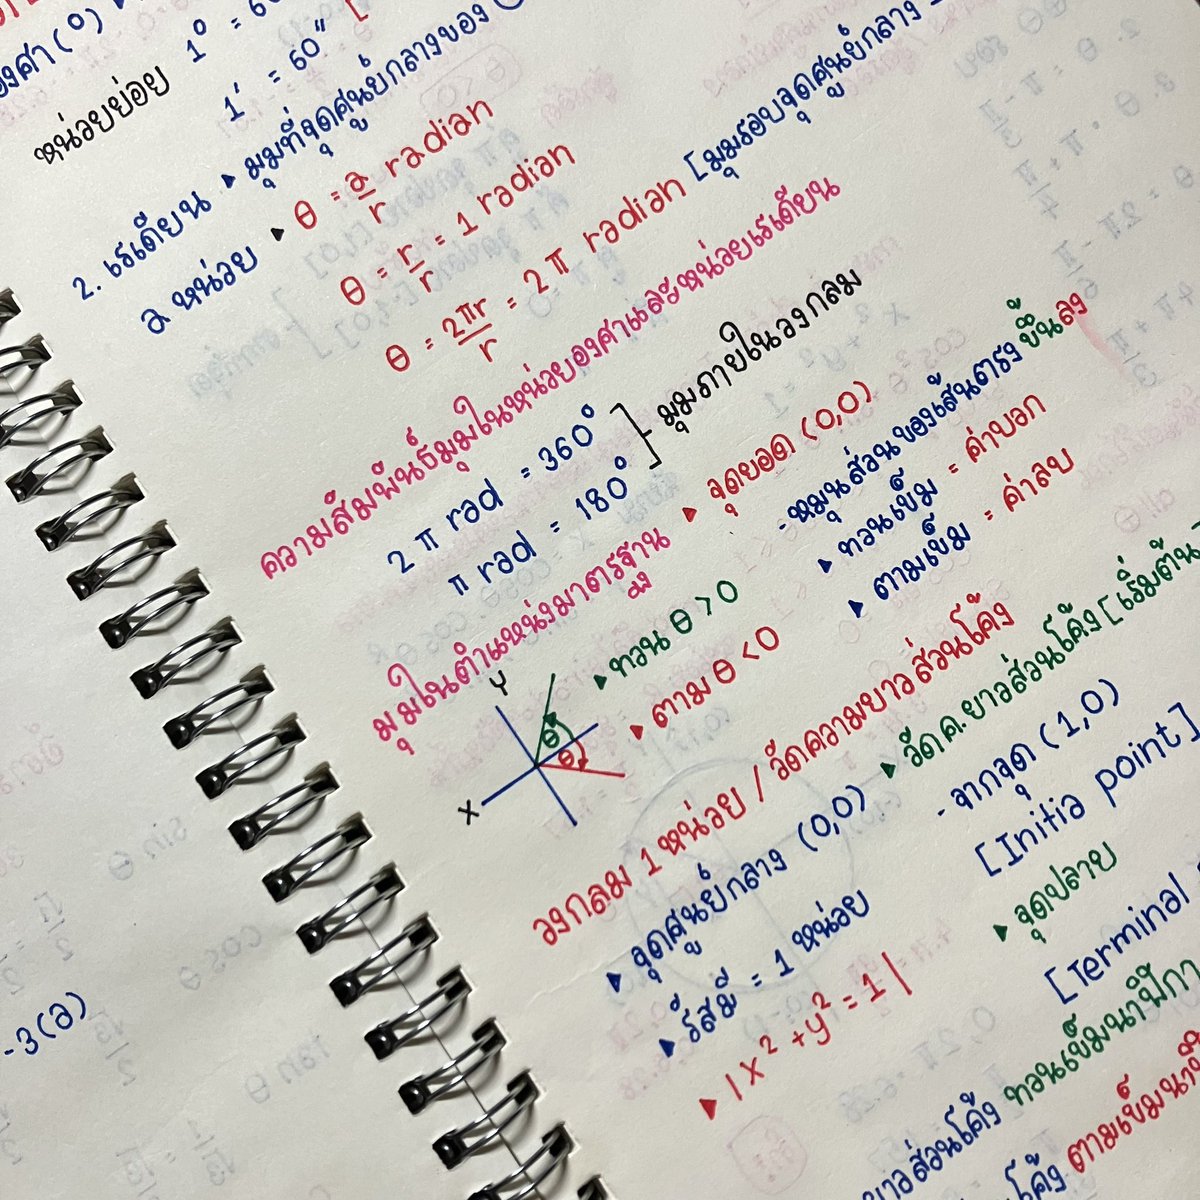 องศา (°)
หน่วยย่อย 1° = 60
1' = 60" [
2. เรเดียน ▸ มุมที่จุดศูนย์กลางของ
a หน่วย ▸ θ = a/r radian
θ = r/r = 1 radian
θ = 2πr/r = 2π radian [มุมรอบจุดศูนย์กลาง
ความสัมพันธ์มุมในหน่วยองศาและหน่วยเรเดียน
2 π rad = 360°
π rad = 180° ]- มุมภายในวงกลม
มุมในตำแหน่งมาตรฐาน ▸ จุดยอด (0,0)
- หมุนส่วนของเส้นตรง ขึ้นลง
▸ ทวนเข็ม = ค่าบวก
▸ ตามเข็ม = ค่าลบ
Y
X
θ
θ
▸ ทวน θ > 0
▸ ตาม θ < 0
วงกลม 1 หน่วย / วัดความยาวส่วนโค้ง
▸ จุดศูนย์กลาง (0,0)
▸ รัสมี = 1 หน่วย
▸ | x² + y² = 1 |
▸ วัดค.ยาวส่วนโค้ง [เริ่มต้น
- จากจุด (1,0)
[Initia point]
▸ จุดปลาย
[Terminal
ยาวส่วนโค้ง ทวนเข็มนาฬิกา
โค้ง ตามเข็มนาฬิ
-3(a)